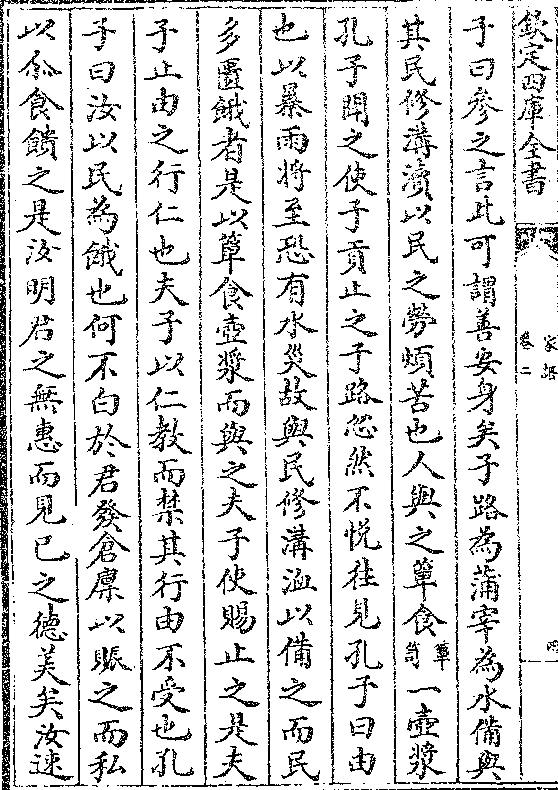 欽定四庫全書
家語
卷二
四
子曰參之言此可謂善安身矣子路為蒲宰為水備與
其民修溝瀆以民之勞煩苦也人與之簞食簞笥一壺漿
孔子聞之使子貢止之子路忿然不悅往見孔子曰由
也以暴雨將至恐有水災故與民修溝洫以備之而民
多匱餓者是以簞食壺漿而與之夫子使賜止之是夫
子止由之行仁也夫子以仁教而禁其行由不受也孔
子曰汝以民為餓也何不白於君發倉廩以賑之而私
以爾食饋之是汝明君之無惠而見己之德美矣汝速